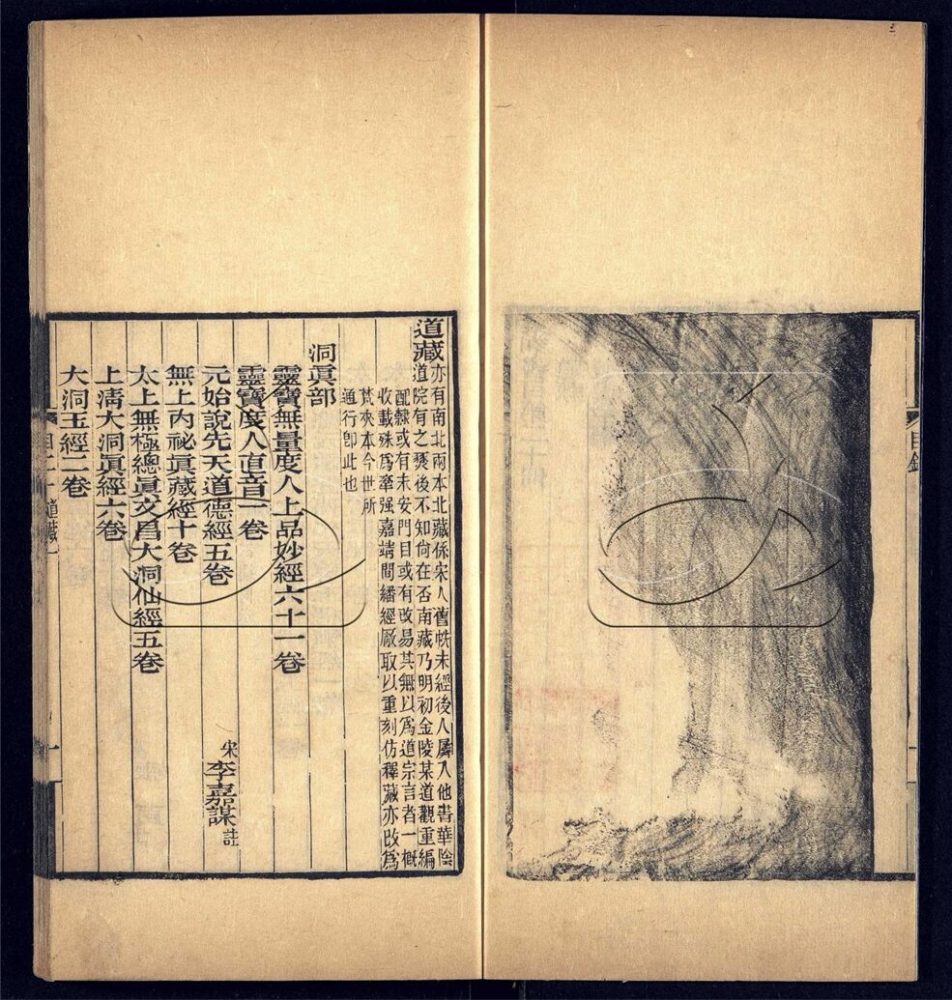 目錄
道藏亦有南北兩本北藏係宋人舊帙未經後人羼入他書華陰
道院有之燹後不知尙在否南藏乃明初金陵某道觀重編
配隸或有未安門目或有改易其無以爲道宗言者一概
收載殊爲牽强嘉靖間繙經厰取以重刻仿釋藏亦改爲
梵夾本今世所
通行卽此也
洞眞部
靈寶無量度人上品妙經六十一卷
靈寶度人直音一卷
元始說先天道德經五卷 宋李嘉謀註
無上內祕眞藏經十卷
太上無極總眞文昌大洞仙經五卷
上淸大洞眞經六卷
大洞玉經二卷
道藏